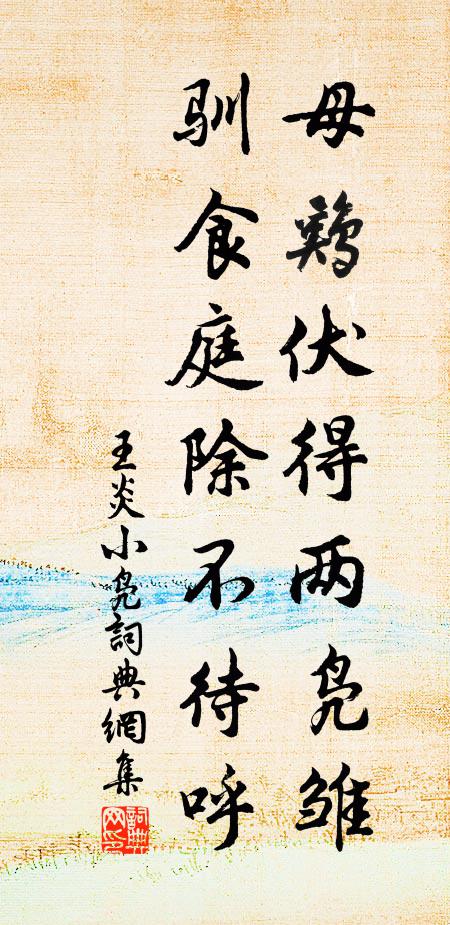 母鷄伏得两凫雏
驯食庭除不待呼
王炎小凫詞典網集
詞典网印